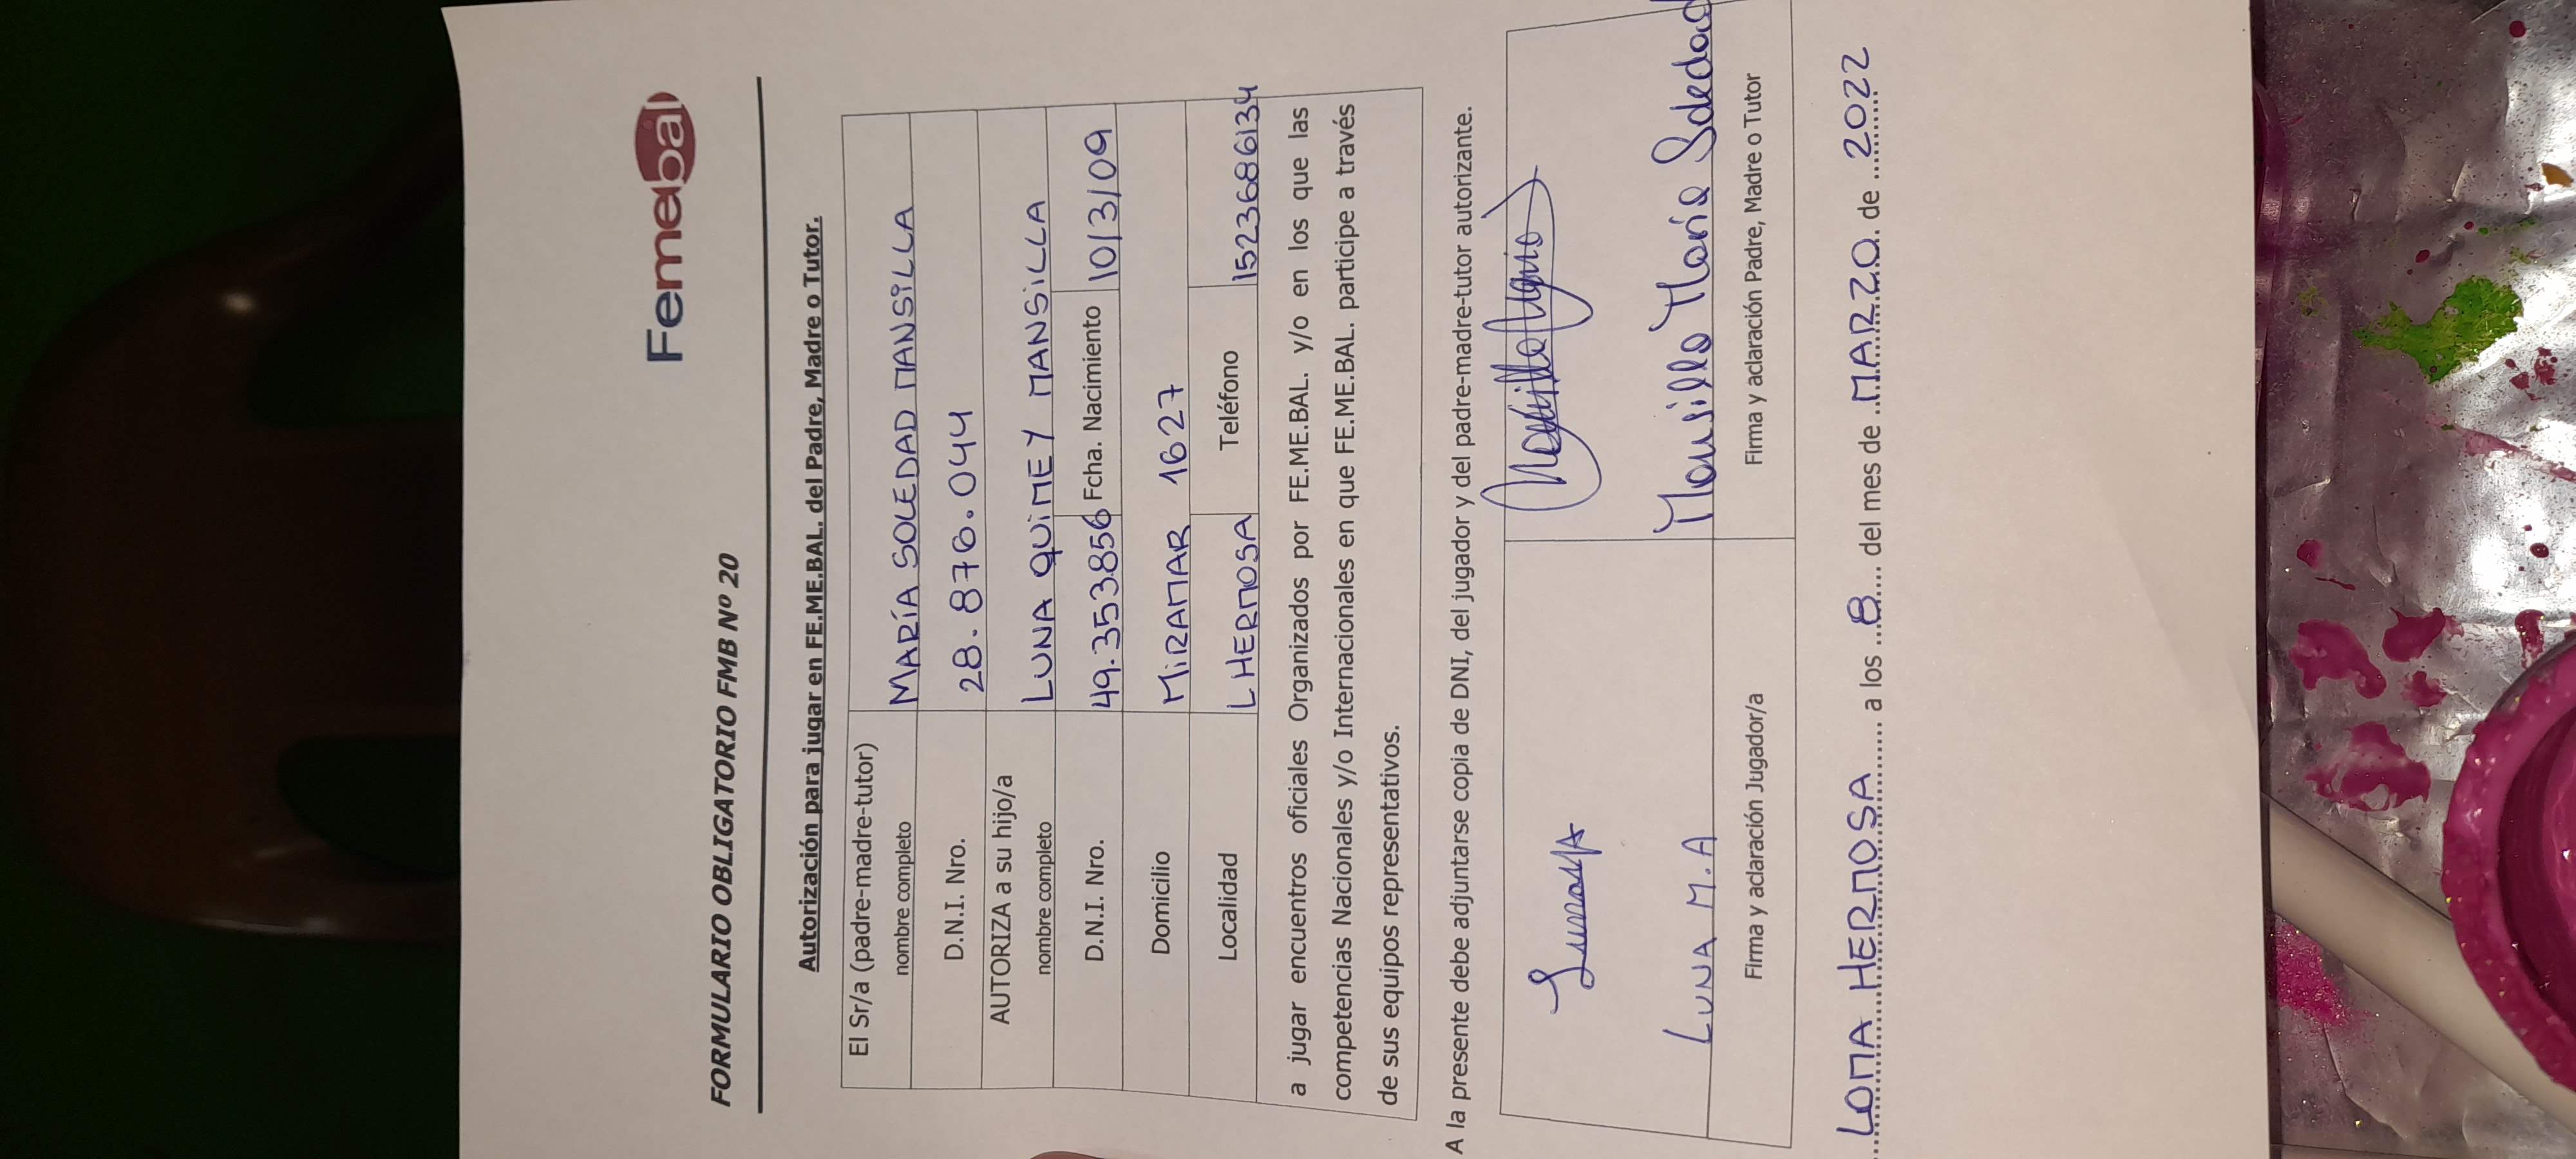 Femebal
FORMULARIO OBLIGATORIO FMB Nº 20
Autorización para jugar en FE.ME.BAL. del Padre, Madre o Tutor.
El Sr/a (padre-madre-tutor)
nombre completo MARÍA SOLEDAD MANSILLA
D.N.I. Nro. 28.876.044
AUTORIZA a su hijo/a
nombre completo LUNA QUIMEY MANSILLA
D.N.I. Nro. 49.353.856 Fcha. Nacimiento 10/3/09
Domicilio MIRAMAR 1627
Localidad L HERMOSA Teléfono 1523686134
a jugar encuentros oficiales Organizados por FE.ME.BAL. y/o en los que las
competencias Nacionales y/o Internacionales en que FE.ME.BAL. participe a través
de sus equipos representativos.
A la presente debe adjuntarse copia de DNI, del jugador y del padre-madre-tutor autorizante.
LUNA M.A Mansilla María Soledad
Firma y aclaración Jugador/a Firma y aclaración Padre, Madre o Tutor
LOMA HERMOSA a los 8 del mes de MARZO de 2022